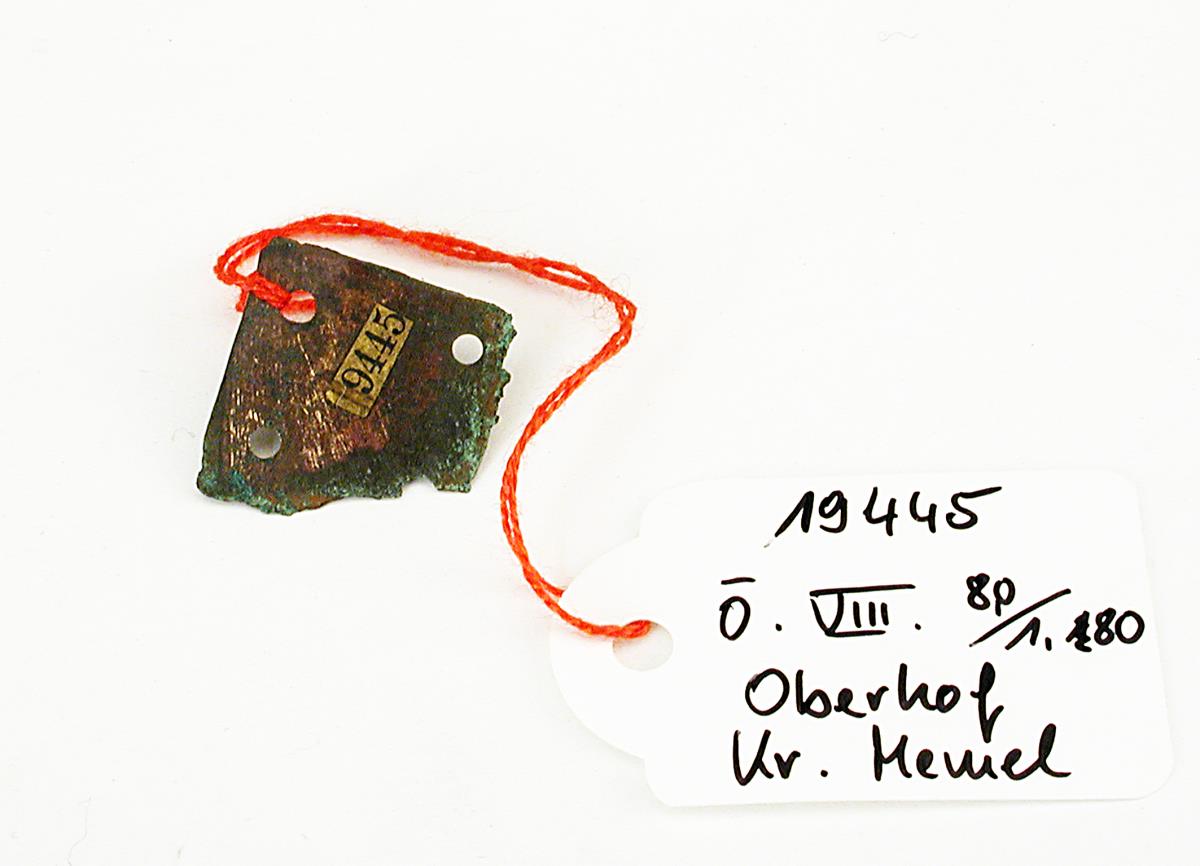 19445
19445
Ō. VIII. 8p/1. 180
Oberhof
Kr. Memel